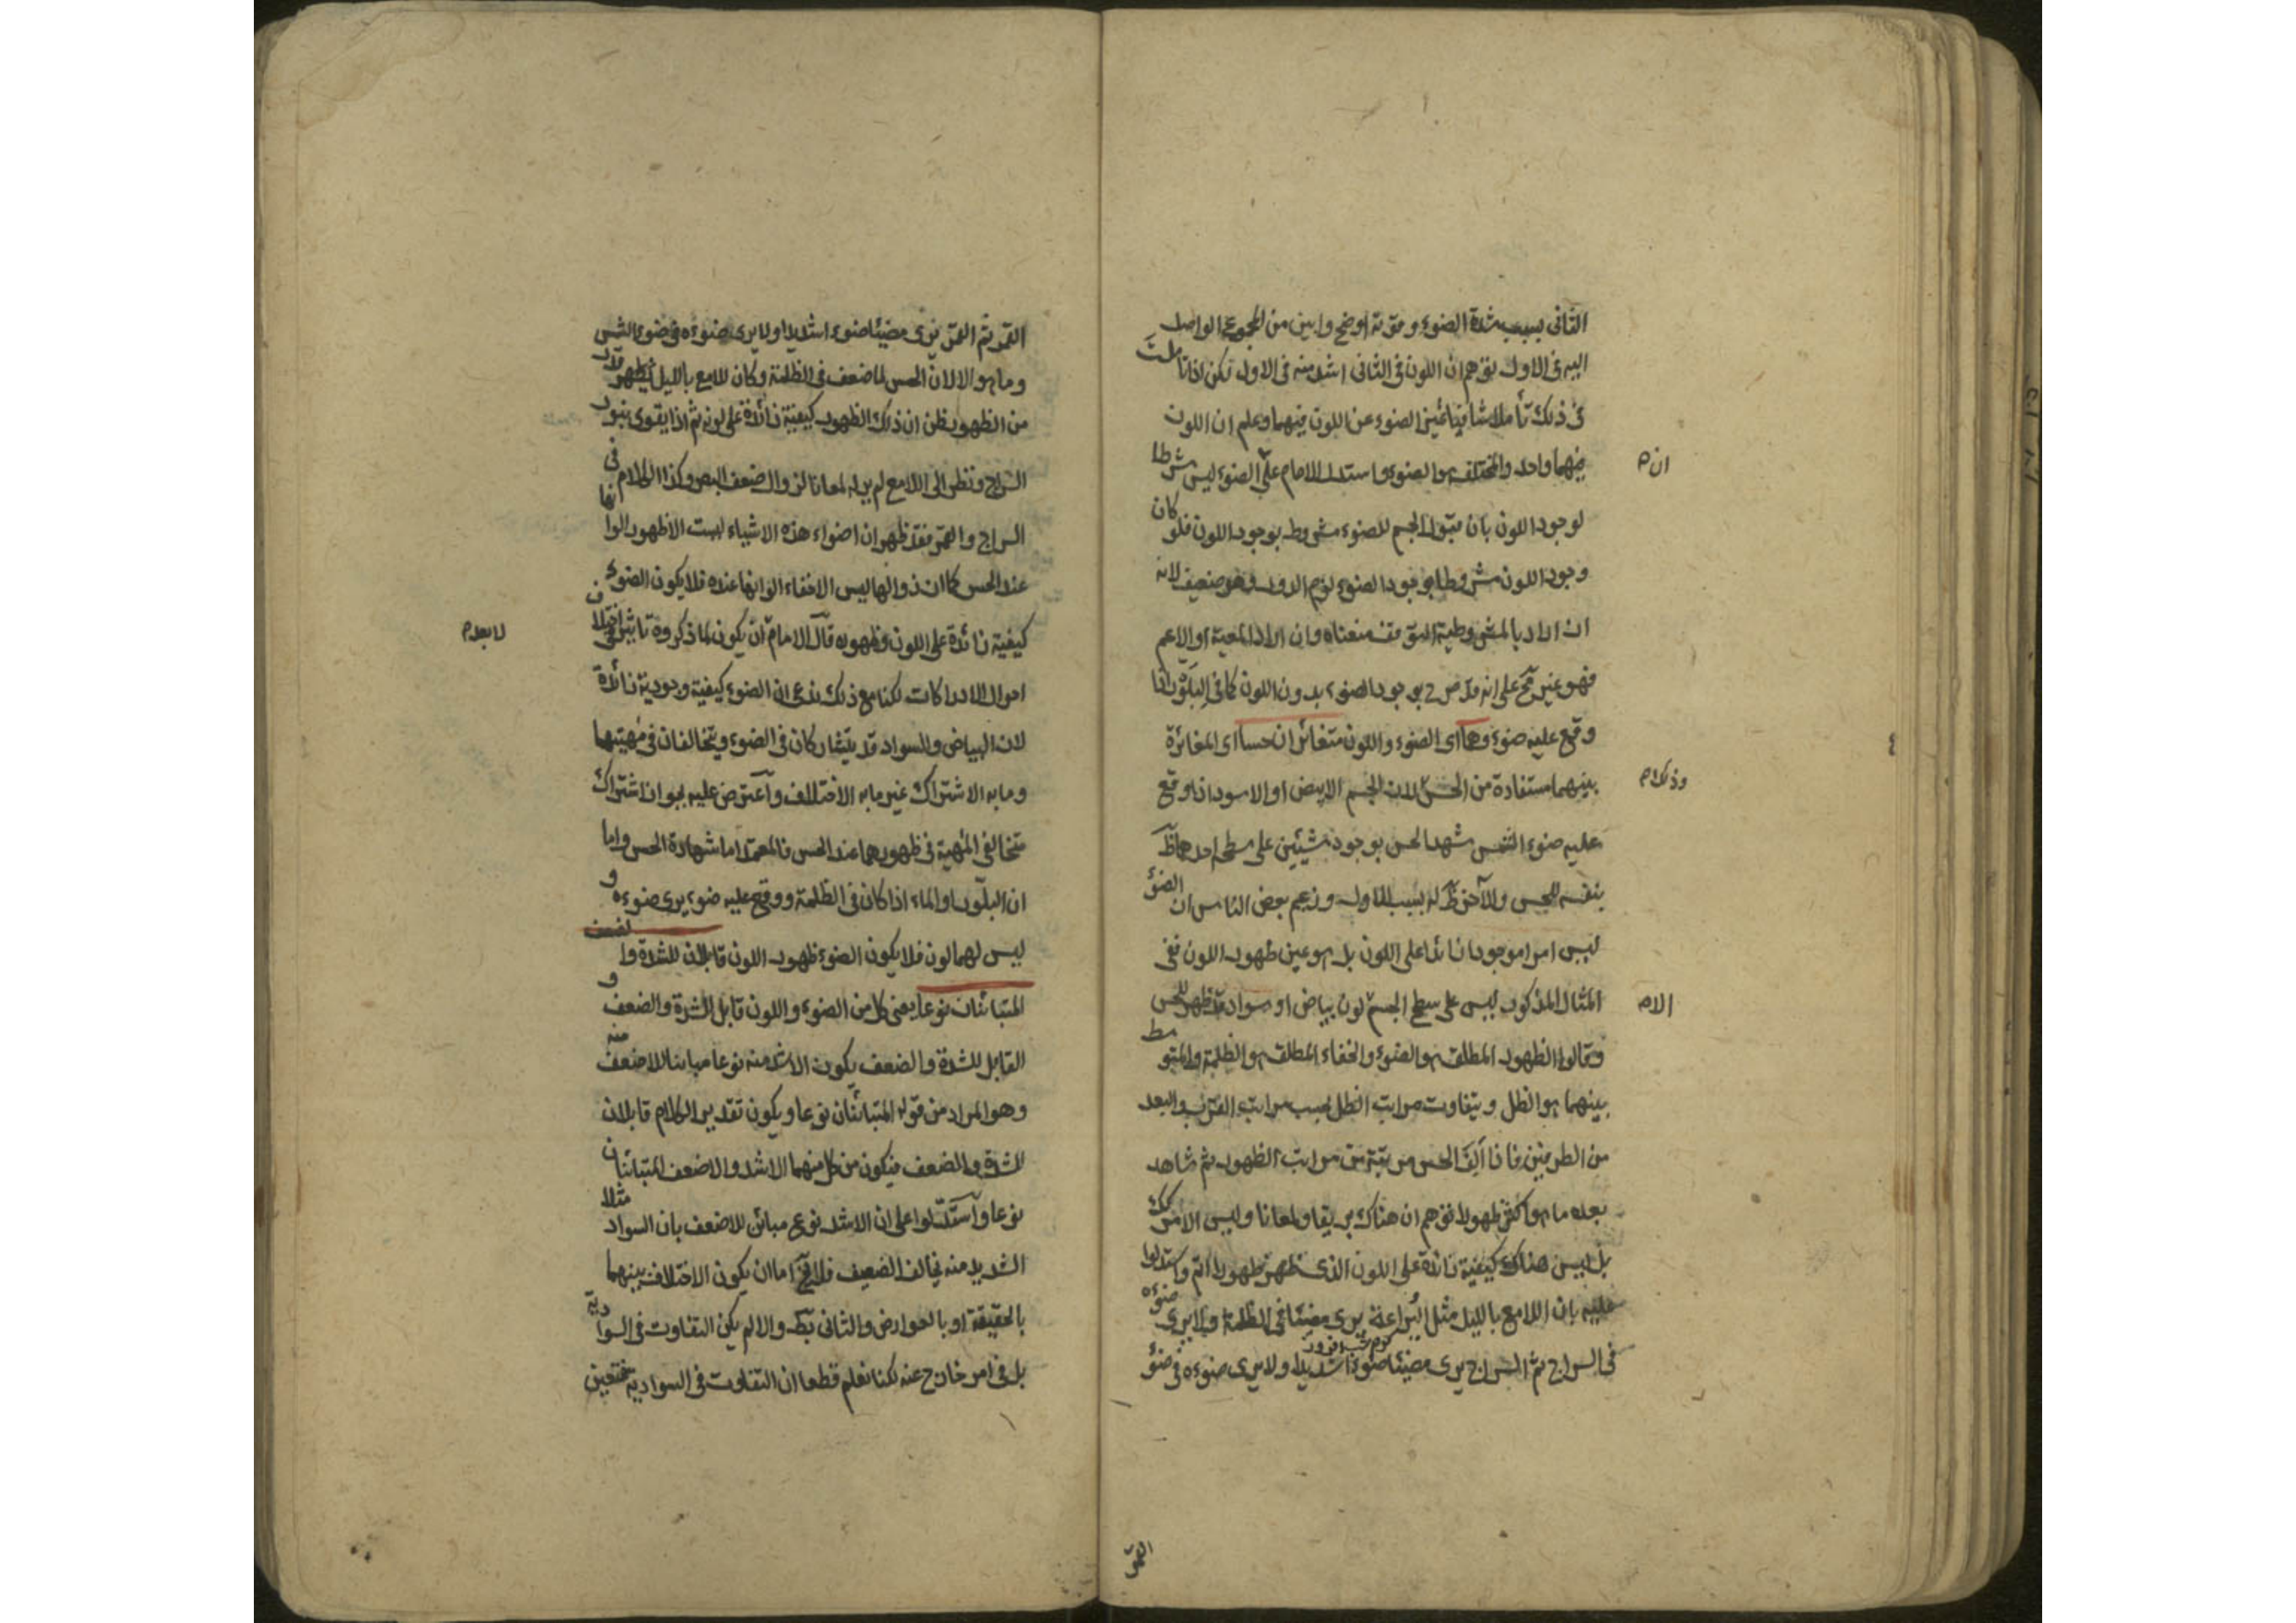 الثانى بسبب شدة الضوء وقوته اوضح وابين من المجموع الواصل
اليه فى الاول توهم ان اللون فى الثانى اشد منه فى الاول لكن اذا تاملت
فى ذلك تأملا شافيا تميز الضوء عن اللون فيهما وعلم ان اللون
ان م
فيهما واحد والمختلف هو الضوء واستدل الامام على الضوء ليس شرطا
لوجود اللون بان قبول الجسم للضوء مشروط بوجود اللون فلو كان
وجود اللون مشروطا بوجود الضوء لزم الدور وهو ضعيف لانه
ان اراد بالمشروطية السبق فقد منعناه وان اراد المعية او الاعم
فهو غير مح على انه قد صرح بوجود الضوء بدون اللون كما فى البلور اذا
وقع عليه ضوء وهما اى الضوء واللون متغائران حسا اى المغائرة
وذلك م
بينهما مستفادة من الحس لان الجسم الابيض او الاسود اذا وقع
عليه ضوء الشمس شهد الحس بوجود شيئين على سطح احدهما ظ
بنفسه للحس والآخر ظ له بسبب الاول وزعم بعض الناس ان الضوء
ليس امرا موجودا زائدا على اللون بل هو عين ظهور اللون ففى
الا م
المثال المذكور ليس على سطح الجسم لون بياض او سواد قد ظهر للحس
وقالوا الظهور المطلق هو الضوء والخفاء المطلق هو الظلمة والمتوسط
بينهما هو الظل ويتفاوت مراتب الظل بحسب مراتب القرب والبعد
من الطرفين فاذا ألِفَ الحس مرتبة من مراتب الظهور ثم شاهد
بعده ما هو اكثر ظهورا توهم ان هناك بريقا ولمعانا وليس الامر كك
بل ليس هناك كيفية زائدة على اللون الذى ظهر ظهورا اتم واستدلوا
عليه بان اللامع بالليل مثل اليراعة يرى مضيئا فى الظلمة ولا يرى ضوءه
كرم شب افروز
فى السراج ثم السراج يرى مضيئا ضوءا شديدا ولا يرى ضوءه فى ضوء
القمر
القمر ثم القمر يرى مضيئا ضوءا شديدا ولا يرى ضوءه فى ضوء الشمس
وما هو الا لان الحس لما ضعف فى الظلمة وكان للامع بالليل ظهور قلا
من الظهور ظن ان ذلك الظهور كيفية زائدة على لونه ثم اذا يقوى بنور
السراج ونظر الى اللامع لم ير له لمعانا لزوال ضعف البصر وكذا الكلام فى
السراج والقمر فقد ظهر ان اضواء هذه الاشياء ليست الا ظهور الوانها
عند الحس كما ان زوالها ليس الا خفاء الوانها عنده فلا يكون الضوء
لا بعد م
كيفية زائدة على اللون وظهوره قال الامام ان يكون لما ذكروه تاثير فى اختلاف
احوال الادراكات لكنا مع ذلك ندعى ان الضوء كيفية وجودية زائدة
لان البياض والسواد قد يتشاركان فى الضوء ويتخالفان فى مهيتهما
وما به الاشتراك غير ما به الاختلاف واعترض عليه بجواز اشتراك
متخالفى المهية فى ظهورهما عند الحس فالمعتمد اما شهادة الحس واما
ان البلور او الماء اذا كان فى الظلمة ووقع عليه ضوء يرى ضوءه و
ليس لهما لون فلا يكون الضوء ظهور اللون قابلان للشدة والضعف
المتبائنان نوعا يعنى كل من الضوء واللون قابل للشدة والضعف و
القابل للشدة والضعف يكون الاشد منه نوعا مباينا للاضعف منه
وهو المراد من قوله المتبائنان نوعا ويكون تقدير الكلام قابلان
للشدة والضعف فيكون من كل منهما الاشد والاضعف المتبائنان
نوعا واستدلوا على ان الاشد نوع مبائن للاضعف بان السواد مثلا
الشديد منه يخالف الضعيف فلا يخ اما ان يكون الاختلاف بينهما
بالحقيقة او بالعوارض والثانى بط والا لم يكن التفاوت فى السوادية
بل فى امر خارج عنه لكنا نعلم قطعا ان التفاوت فى السوادية فتعين